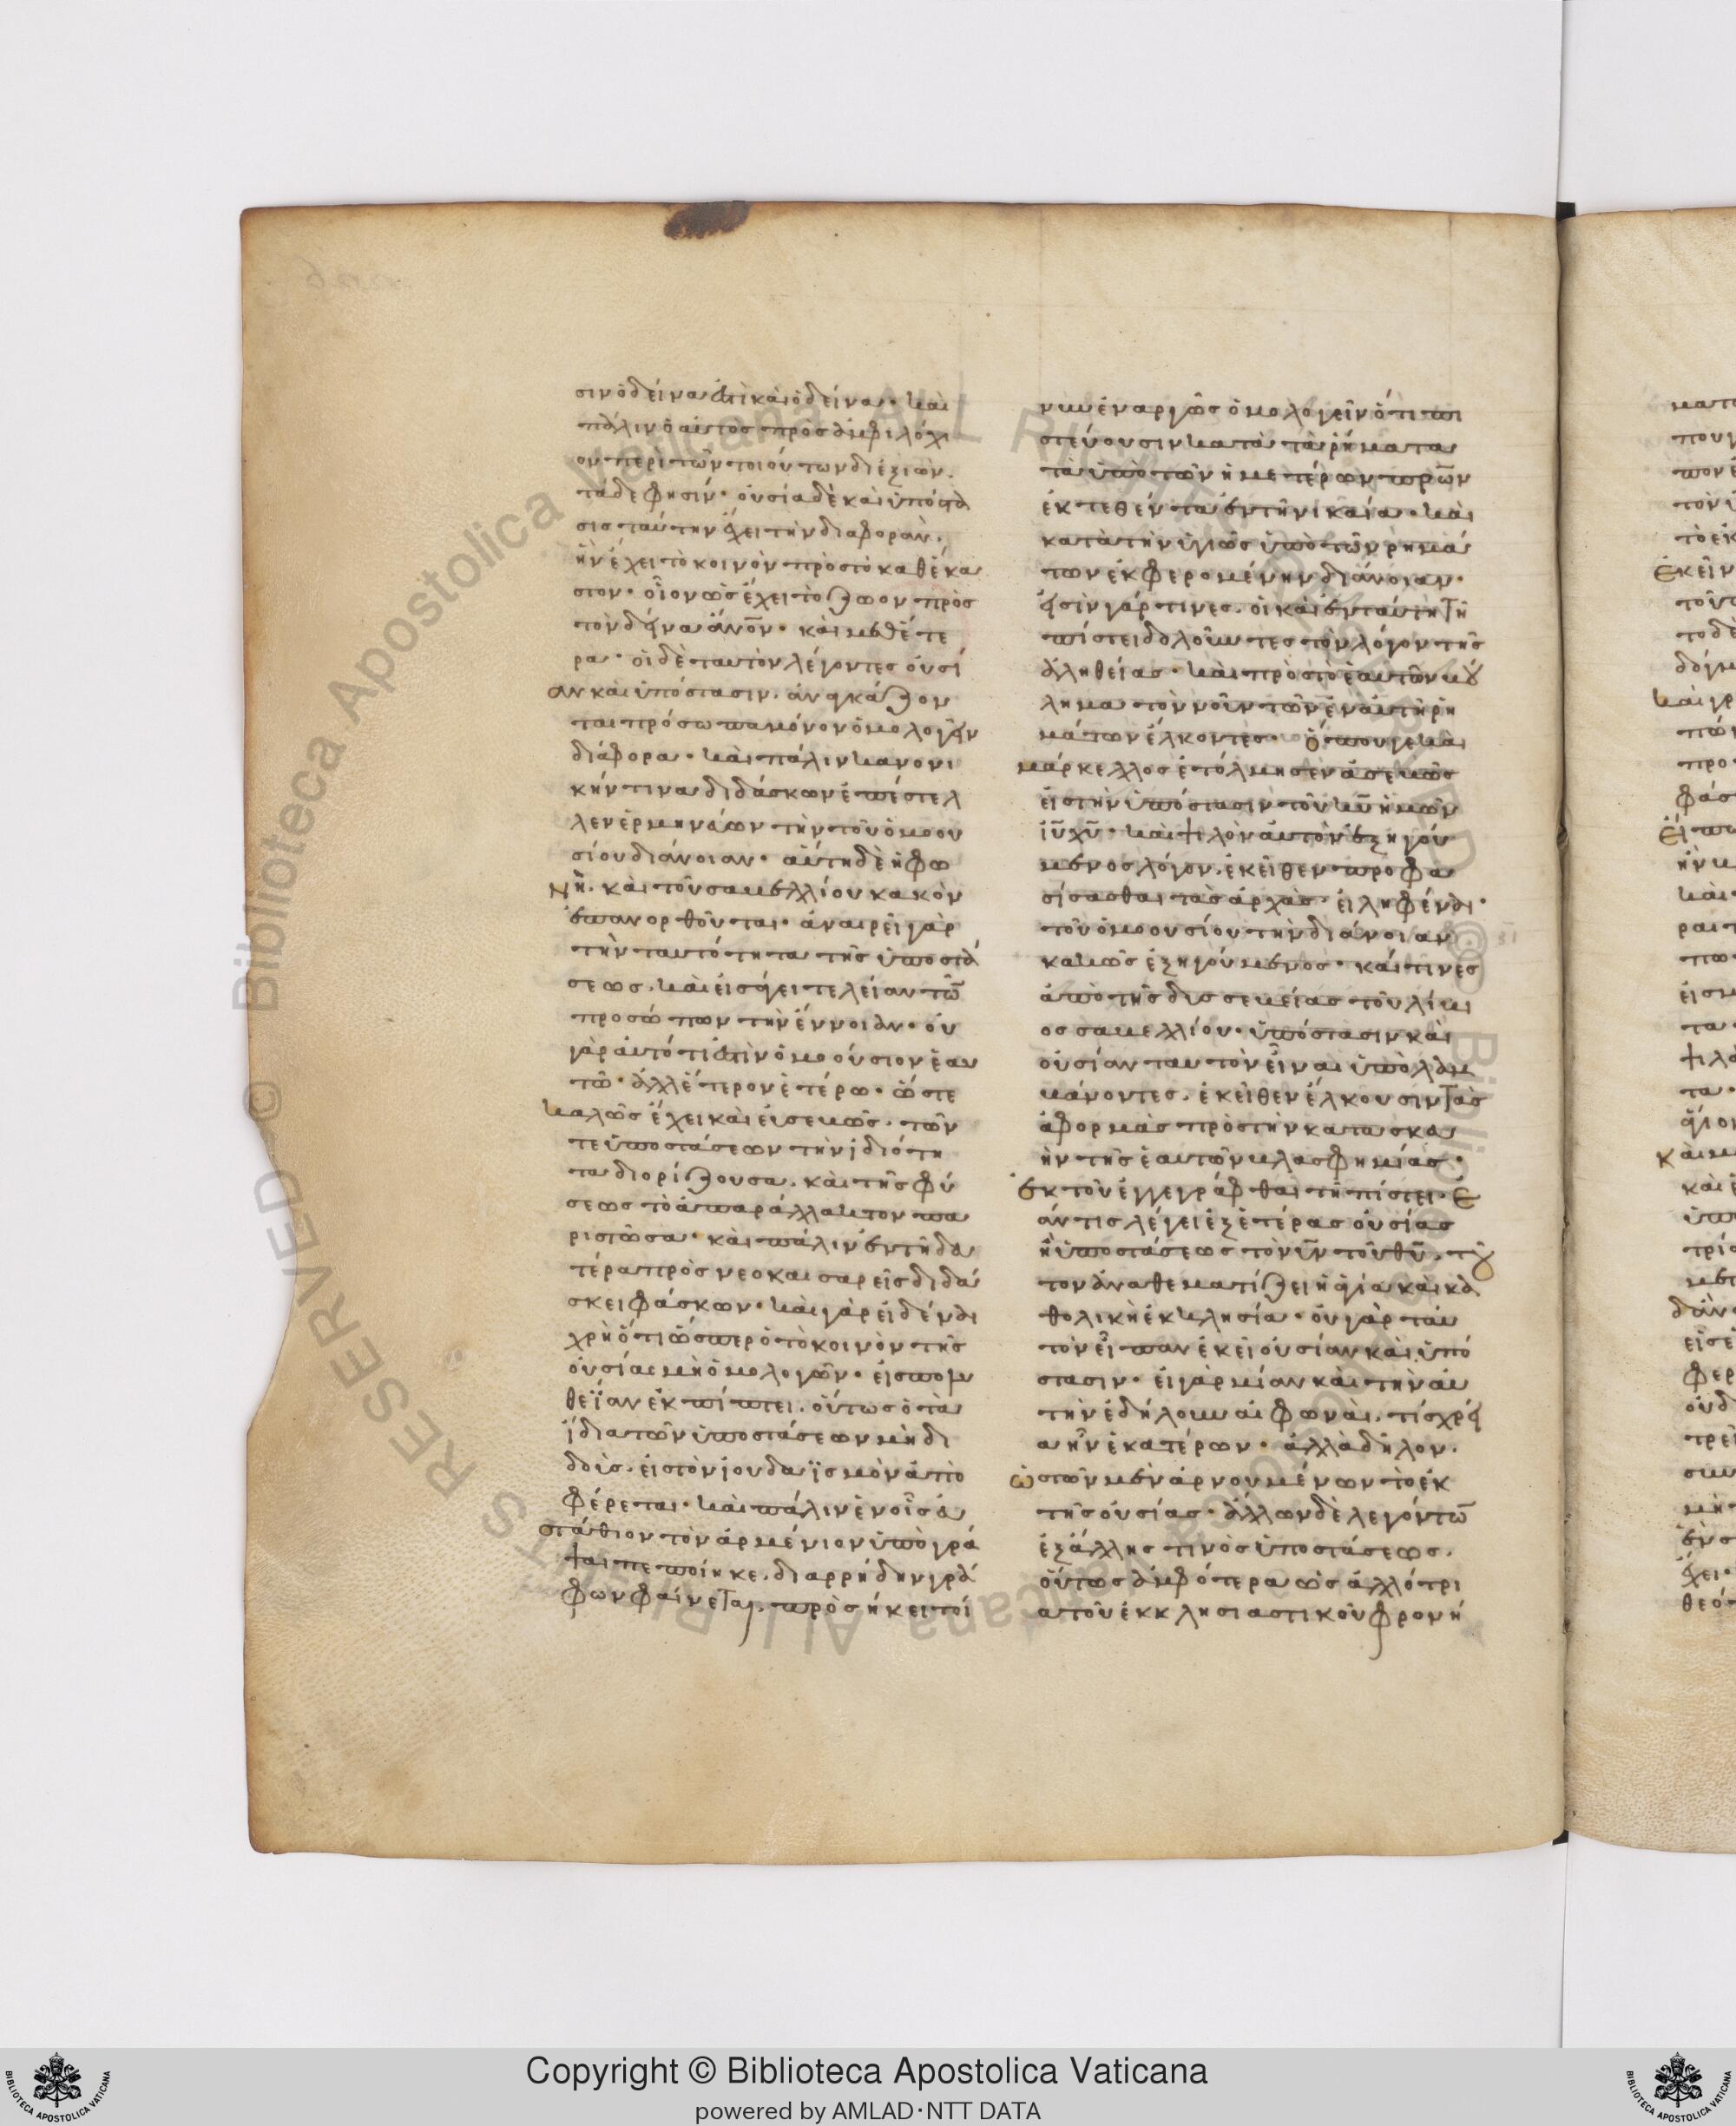 σιν ὁ δεῖνα ἐστὶ καὶ ὁ δεῖνα· καὶ
πάλιν ὁ αὐτὸς πρὸς ἀμφιλόχι
ον περὶ τῶν τοιούτων διεξιὼν.
τάδε φησίν· οὐσία δὲ καὶ ὑπόστα
σις ταύτην ἔχει τὴν διαφοράν.
ἣν ἔχει τὸ κοινὸν πρὸς τὸ καθέκα
στον· οἷον ὡς ἔχει τὸ ζῶον πρὸς
τὸν δεῖνα ἄνον· καὶ μεθέτε
ρα· οἱ δὲ ταυτὸν λέγοντες οὐσί
αν καὶ ὑπόστασιν. ἀναγκάζον
ται πρόσωπα μόνον ὁμολογεῖν
διάφορα· καὶ πάλιν κανονι
κήν τινα διδάσκων ἐπέστελ
λεν ἑρμηνεύων τὴν τοῦ ὁμοου
σίου διάνοιαν· αὕτη δὲ ἡ φω
νὴ. καὶ τοῦ σαβελλίου κακὸν
ἐπανορθοῦται· ἀναιρεῖ γὰρ
τὴν ταυτότητα τῆς ὑποστά
σεως. καὶ εἰσάγει τελείαν τῶ
προσώπων τὴν ἔννοιαν· οὐ
γὰρ αὐτό τί ἐστὶν ὁμοούσιον ἑαυ
τῶ· ἀλλ' ἕτερον ἑτέρω· ὥστε
καλῶς ἔχει καὶ εὐσεβῶς. τῶν
τε ὑποστάσεων τὴν ἰδιότη
τα διορίζουσα. καὶ τῆς φύ
σεως τὸ ἀπαράλλακτον πα
ριστῶσα· καὶ πάλιν ἐν τῆ δευ
τέρα πρὸς νεοκαισαρεῖς διδά
σκει φάσκων· καὶ γὰρ εἰδέναι
χρὴ ὅτι ὥσπερ ὁ τὸ κοινὸν τῆς
οὐσίας μὴ ὁμολογῶν· εἰς πολυ
θεΐαν ἐκπίπτει. οὕτως ὁ τὰ
ἴδια τῶν ὑποστάσεων μὴ δι
δοὺς. εἰς τὸν ἰουδαϊσμὸν ἀπο
φέρεται· καὶ πάλιν ἐν οἷς εὐ
στάθιον τὸν ἀρμένιον ὑπογρά
ψαι πεποίηκε. διαρρήδην γρά
φων φαίνεται. πρὸσήκει τοί
νυν ἐναργῶς ὁμολογεῖν ὅτι πι
στεύουσιν κατὰ τὰ ῥήματα
τὰ ὑπὸ τῶν ἡμετέρων πρων
ἐκτεθέντα ἐν τῆ νικαία· καὶ
κατὰ τὴν ὑγιῶς ὑπὸ τῶν ρημά
των ἐκφερομένην διάνοιαν·
εἰσὶν γάρ τινες. οἱ καὶ ἐν ταύτη τῆ
πίστει δολοῦντες τὸν λόγον τῆς
ἀληθείας· καὶ πρὸς τὸ ἑαυτῶν βού
λημα τὸν νοῦν τῶν ἐν αὐτῆ ρη
μάτων ἕλκοντες· ὅπου γε καὶ
μάρκελλος ἐτόλμησεν ἀσεβῶς
εἰς τὴν ὑπόστασιν τοῦ κυ ἡμῶν
ἰυ χυ· καὶ ψιλὸν αὐτὸν ἐξηγού
μενος λόγον. ἐκεῖθεν προφα
σίσασθαι τὰς ἀρχὰς εἰληφέναι·
τοῦ ὁμοουσίου τὴν διάνοιαν
κακῶς ἐξηγούμενος· καί τινες
ἀπὸ τῆς δυσσεβείας τοῦ λίβυ
ος σαβελλίου· ὑπόστασιν καὶ
οὐσίαν ταυτὸν εἶναι ὑπολαμ
βάνοντες. ἐκεῖθεν ἕλκουσιν τὰς
ἀφορμὰς πρὸς τὴν κατασκευ
ὴν τῆς ἑαυτῶν βλασφημίας·
ἐκ τοῦ ἐγγεγράφθαι τῆ πίστει· ἐ
άν τις λέγει ἐξ ἑτέρας οὐσίας
ἢ ὑποστάσεως τὸν υν τοῦ θυ. τοῦ
τον ἀναθεματίζει ἡ ἁγία καὶ κα
θολικὴ ἐκκλησία· οὐ γὰρ ταυ
τὸν εἶπαν ἐκεῖ οὐσίαν καὶ ὑπό
στασιν· εἰ γὰρ μίαν καὶ τὴν αὐ
τὴν ἐδήλουν αἱ φωναὶ. τίς χρεί
α ἦν ἑκατέρων· ἀλλὰ δῆλον.
ὡς τῶν μὲν ἀρνουμένων τὸ ἐκ
τῆς οὐσίας· ἄλλων δὲ λεγόντω
ἐξ ἄλλης τινὸς ὑποστάσεως.
οὕτως ἀμφότερα ὡς ἀλλότρι
α τοῦ ἐκκλησιαστικοῦ φρονή
Copyright © Biblioteca Apostolica Vaticana
powered by AMLAD·NTT DATA